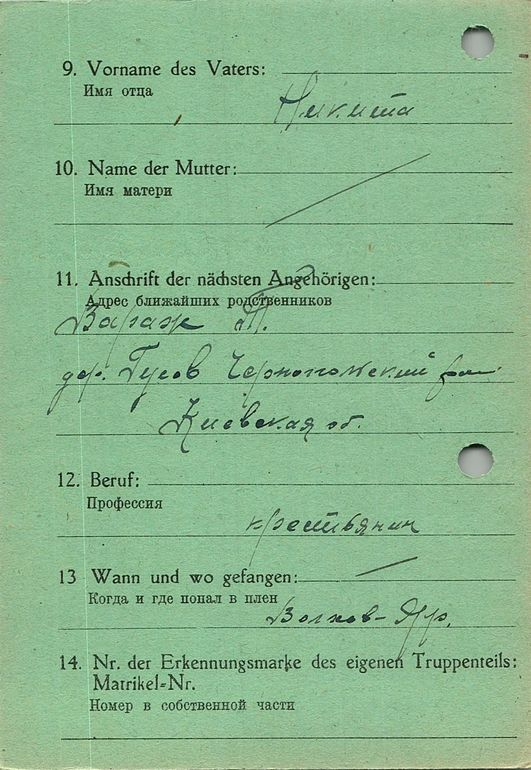 9. Vorname des Vaters:
Имя отца
Никита
10. Name der Mutter:
Имя матери
11. Anschrift der nächsten Angehörigen:
Адрес ближайших родственников
Т.
дер. Гусов
Киевская об.
12. Beruf:
Профессия
крестьянин
13 Wann und wo gefangen:
Когда и где попал в плен
Волхов-
14. Nr. der Erkennungsmarke des eigenen Truppenteils:
Matrikel-Nr.
Номер в собственной части